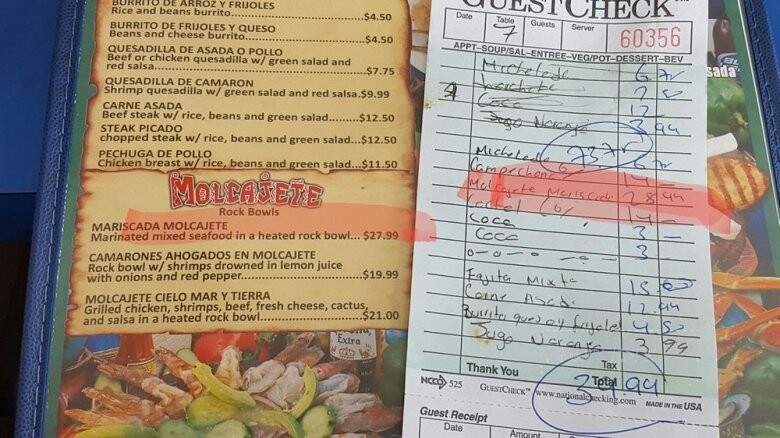 BURRITO DE ARROZ Y FRIJOLES
Rice and beans burrito...$4.50
BURRITO DE FRIJOLES Y QUESO
Beans and cheese burrito...$4.50
QUESADILLA DE ASADA O POLLO
Beef or chicken quesadilla w/ green salad and
red salsa...$7.75
QUESADILLA DE CAMARON
Shrimp quesadilla w/ green salad and red salsa.$9.99
CARNE ASADA
Beef steak w/ rice, beans and green salad...$12.50
STEAK PICADO
chopped steak w/ rice, beans and green salad...$12.50
PECHUGA DE POLLO
Chicken breast w/ rice, beans and green salad...$11.50
MOLCAJETE
Rock Bowls
MARISCADA MOLCAJETE
Marinated mixed seafood in a heated rock bowl... $27.99
CAMARONES AHOGADOS EN MOLCAJETE
Rock bowl w/ shrimps drowned in lemon juice
with onions and red pepper...$19.99
MOLCAJETE CIELO MAR Y TIERRA
Grilled chicken, shrimps, beef, fresh cheese, cactus,
and salsa in a heated rock bowl...$21.00
Extra
sada
GUESTCHECK™
Date Table Guests Server
7 60356
APPT-SOUP/SAL-ENTREE-VEG/POT-DESSERT-BEV
Michelada
Coca
Jugo Naranja 3 99
Michelada
Campechana 14 —
Molcajete Mariscada 28 99
Coctel 14 —
Coca 3 —
Coca 3 —
Fajita Mixta
Carne Asada 12.99
Burrito queso y frijoles 4 50
Jugo Naranja 3 99
Thank You
Tax
Total
NCCO 525 GUESTCHECK™ www.nationalchecking.com MADE IN THE USA
Guest Receipt
Date Amount